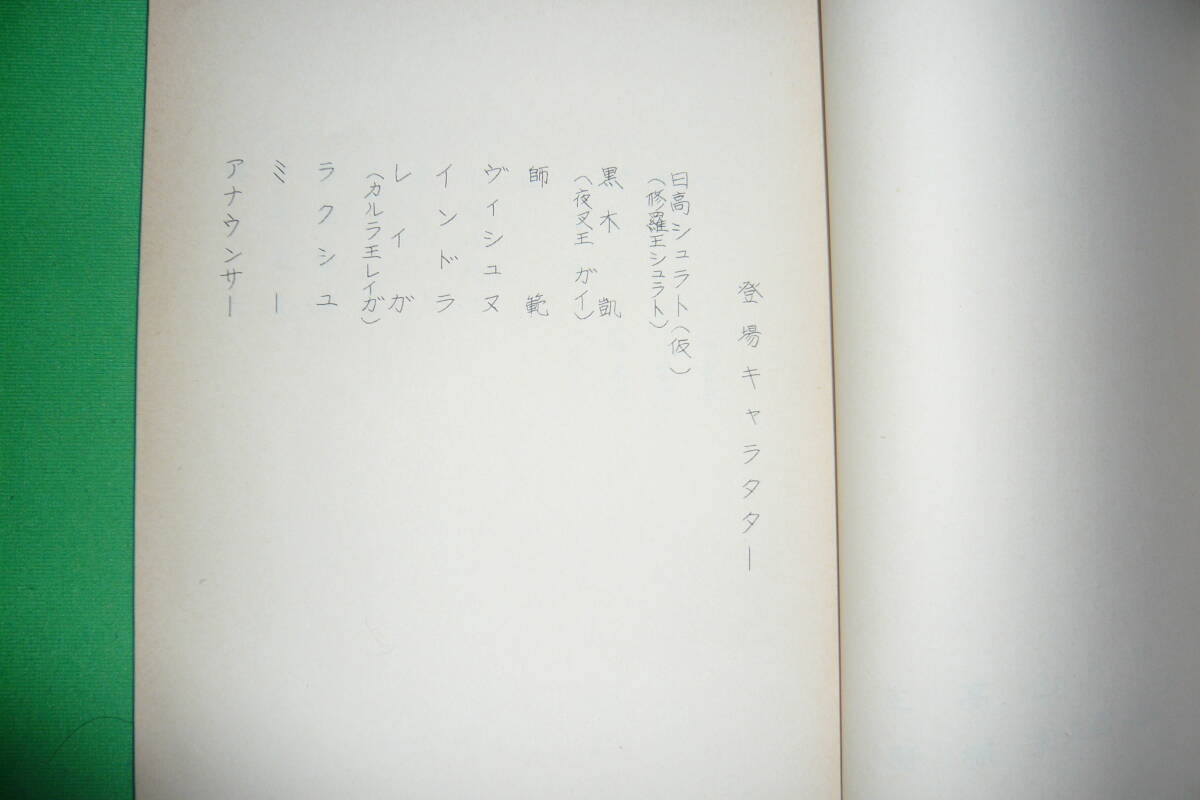 登場キャラクター
日高シュラト(仮)
(修羅王シュラト)
黒木凱
(夜叉王 ガイ)
師範
ヴィシュヌ
インドラ
レイガ
(カルラ王レイガ)
ラクシュ
ミー
アナウンサー